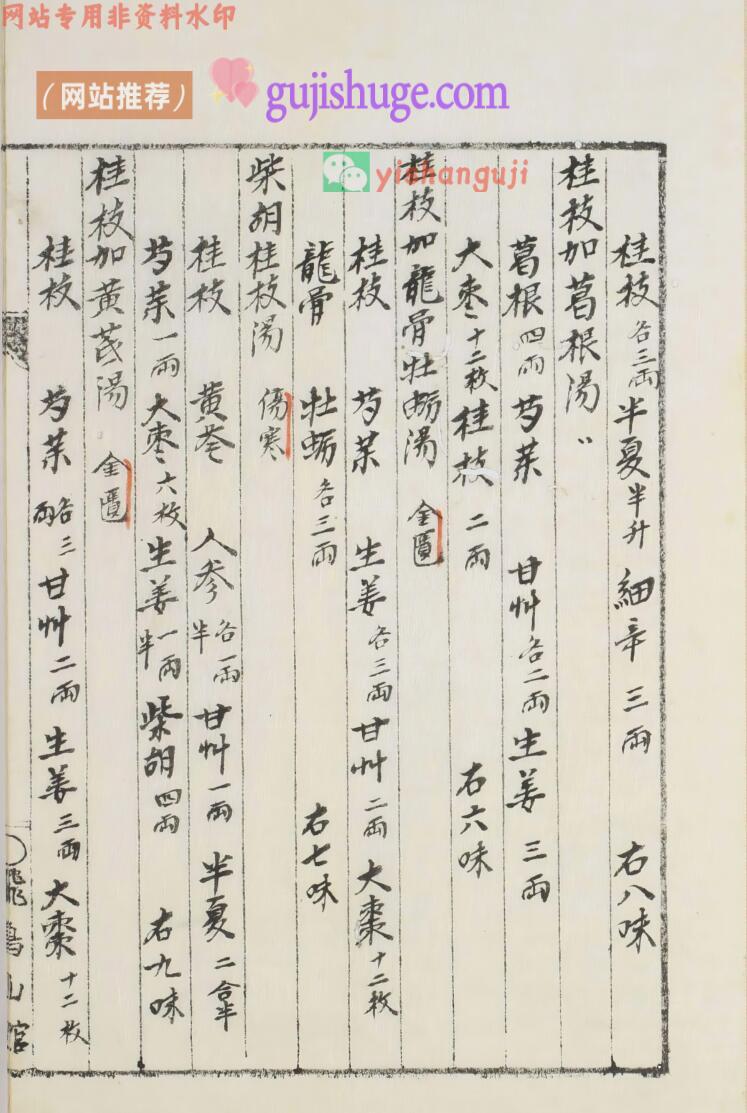 网站专用非资料水印
（网站推荐） gujishuge.com
yishanguji
桂枝 各三両 半夏 半升 細辛 三両 右八味
桂枝加葛根湯 〃
葛根 四両 芍薬 甘艸 各二両 生姜 三両
大枣 十二枚 桂枝 二両 右六味
桂枝加龍骨牡蛎湯 金匱
桂枝 芍薬 生姜 各三両 甘艸 二両 大棗 十二枚
龍骨 牡蛎 各三両 右七味
柴胡桂枝湯 傷寒
桂枝 黄芩 人参 各一両半 甘艸 一両 半夏 二合半
芍薬 一両 大枣 六枚 生姜 一両半 柴胡 四両 右九味
桂枝加黄茋湯 金匱
桂枝 芍薬 各三両 甘艸 二両 生姜 三両 大棗 十二枚